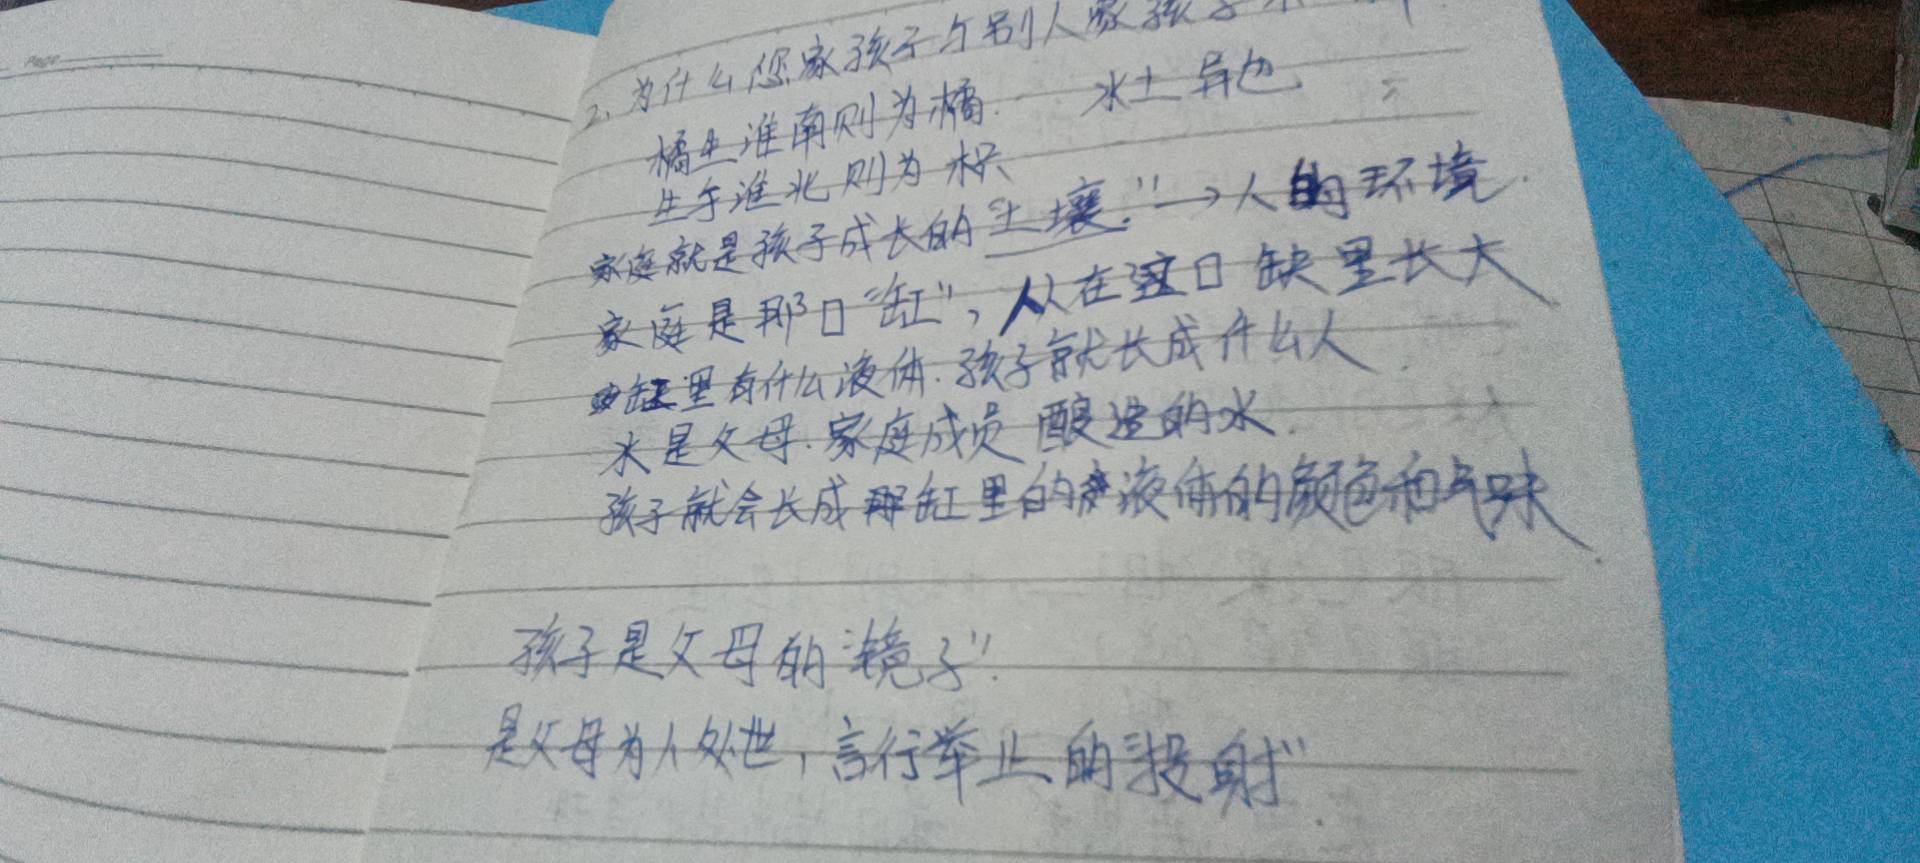 Page
2、为什么您家孩子与别人家孩子不一样
橘生淮南则为橘. 水土异也
生于淮北则为枳
家庭就是孩子成长的“土壤.”→人的环境.
家庭是那口“缸”,从在这口缺里长大
缸里有什么液体.孩子就长成什么人
水是父母.家庭成员酿造的水.
孩子就会长成那缸里的液体的颜色和气味
孩子是父母的“镜子”.
是父母为人处世,言行举止的“投射”